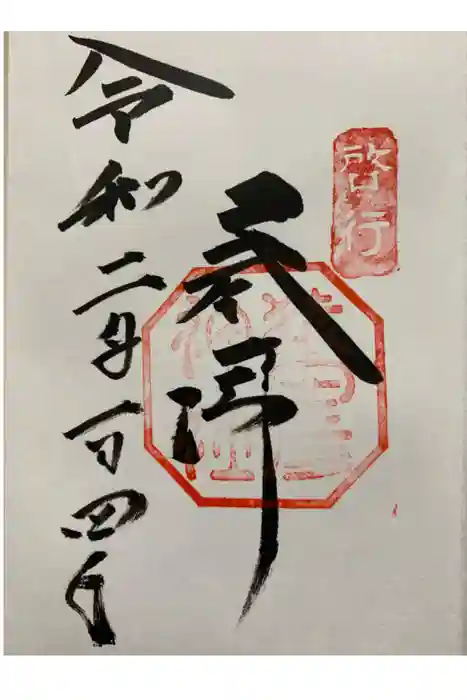 啓行
参拝
神社
令和二年一月四日